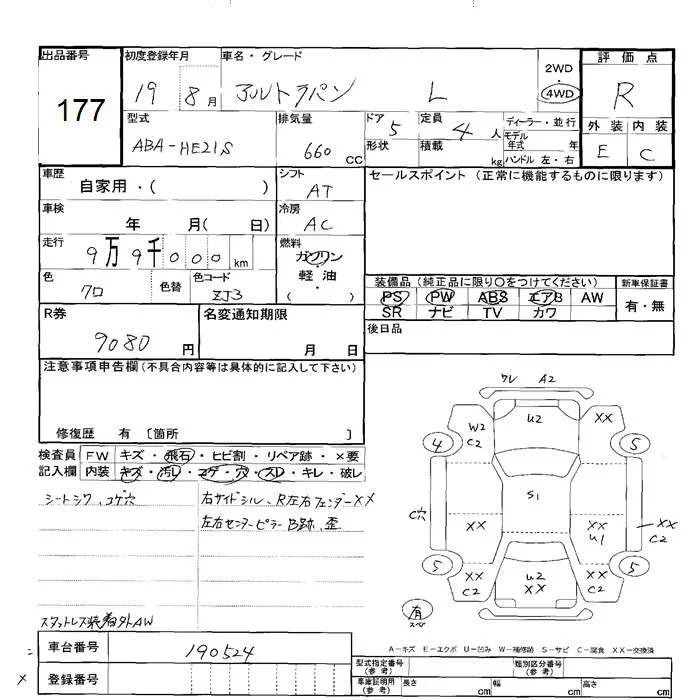 出品番号 初度登録年月 車名・グレード 評価点
177 19 8月 アルトラパン L 2WD・4WD R
型式 排気量 ドア 5 定員 4人 ディーラー・並行 外装 内装
ABA-HE21S 660CC 形状 積載 kg モデル年式 年 E C
ハンドル 左・右
車歴 シフト セールスポイント (正常に機能するものに限ります)
自家用・( ) AT
車検 冷房
年 月( 日) AC
走行 燃料
9万9千000km ガソリン・軽油・( )
色 色替 色コード 装備品 (純正品に限り○をつけてください) 新車保証書
クロ ZJ3 PS PW ABS エアB AW 有・無
SR ナビ TV カワ
R券 名変通知期限 後日品
9080円 月 日
注意事項申告欄 (不具合内容等は具体的に記入して下さい)
修復歴 有 〔箇所 〕
検査員 FW キズ・飛石・ヒビ割・リペア跡・×要
記入欄 内装 キズ・汚レ・コゲ・穴・スレ・キレ・破レ
シートシワ、コゲ穴 右サイドシル、R左右フェンダーXX
左右センターピラーB跡、歪
スタットレス装着外AW
車台番号 190524
登録番号
ワレ A2
U2 XX
W2
C2
4 5
S1
C穴 XX XX XX
U1 C2
5 5
XX U2 XX
C2 XX C2
有
スペ
A-キズ E-エクボ U-凹み W-補修跡 S-サビ C-腐食 XX-交換済
型式指定番号 (参考) 類別区分番号 (参考)
車庫証明用 (参考) 長さ cm 幅 cm 高さ cm